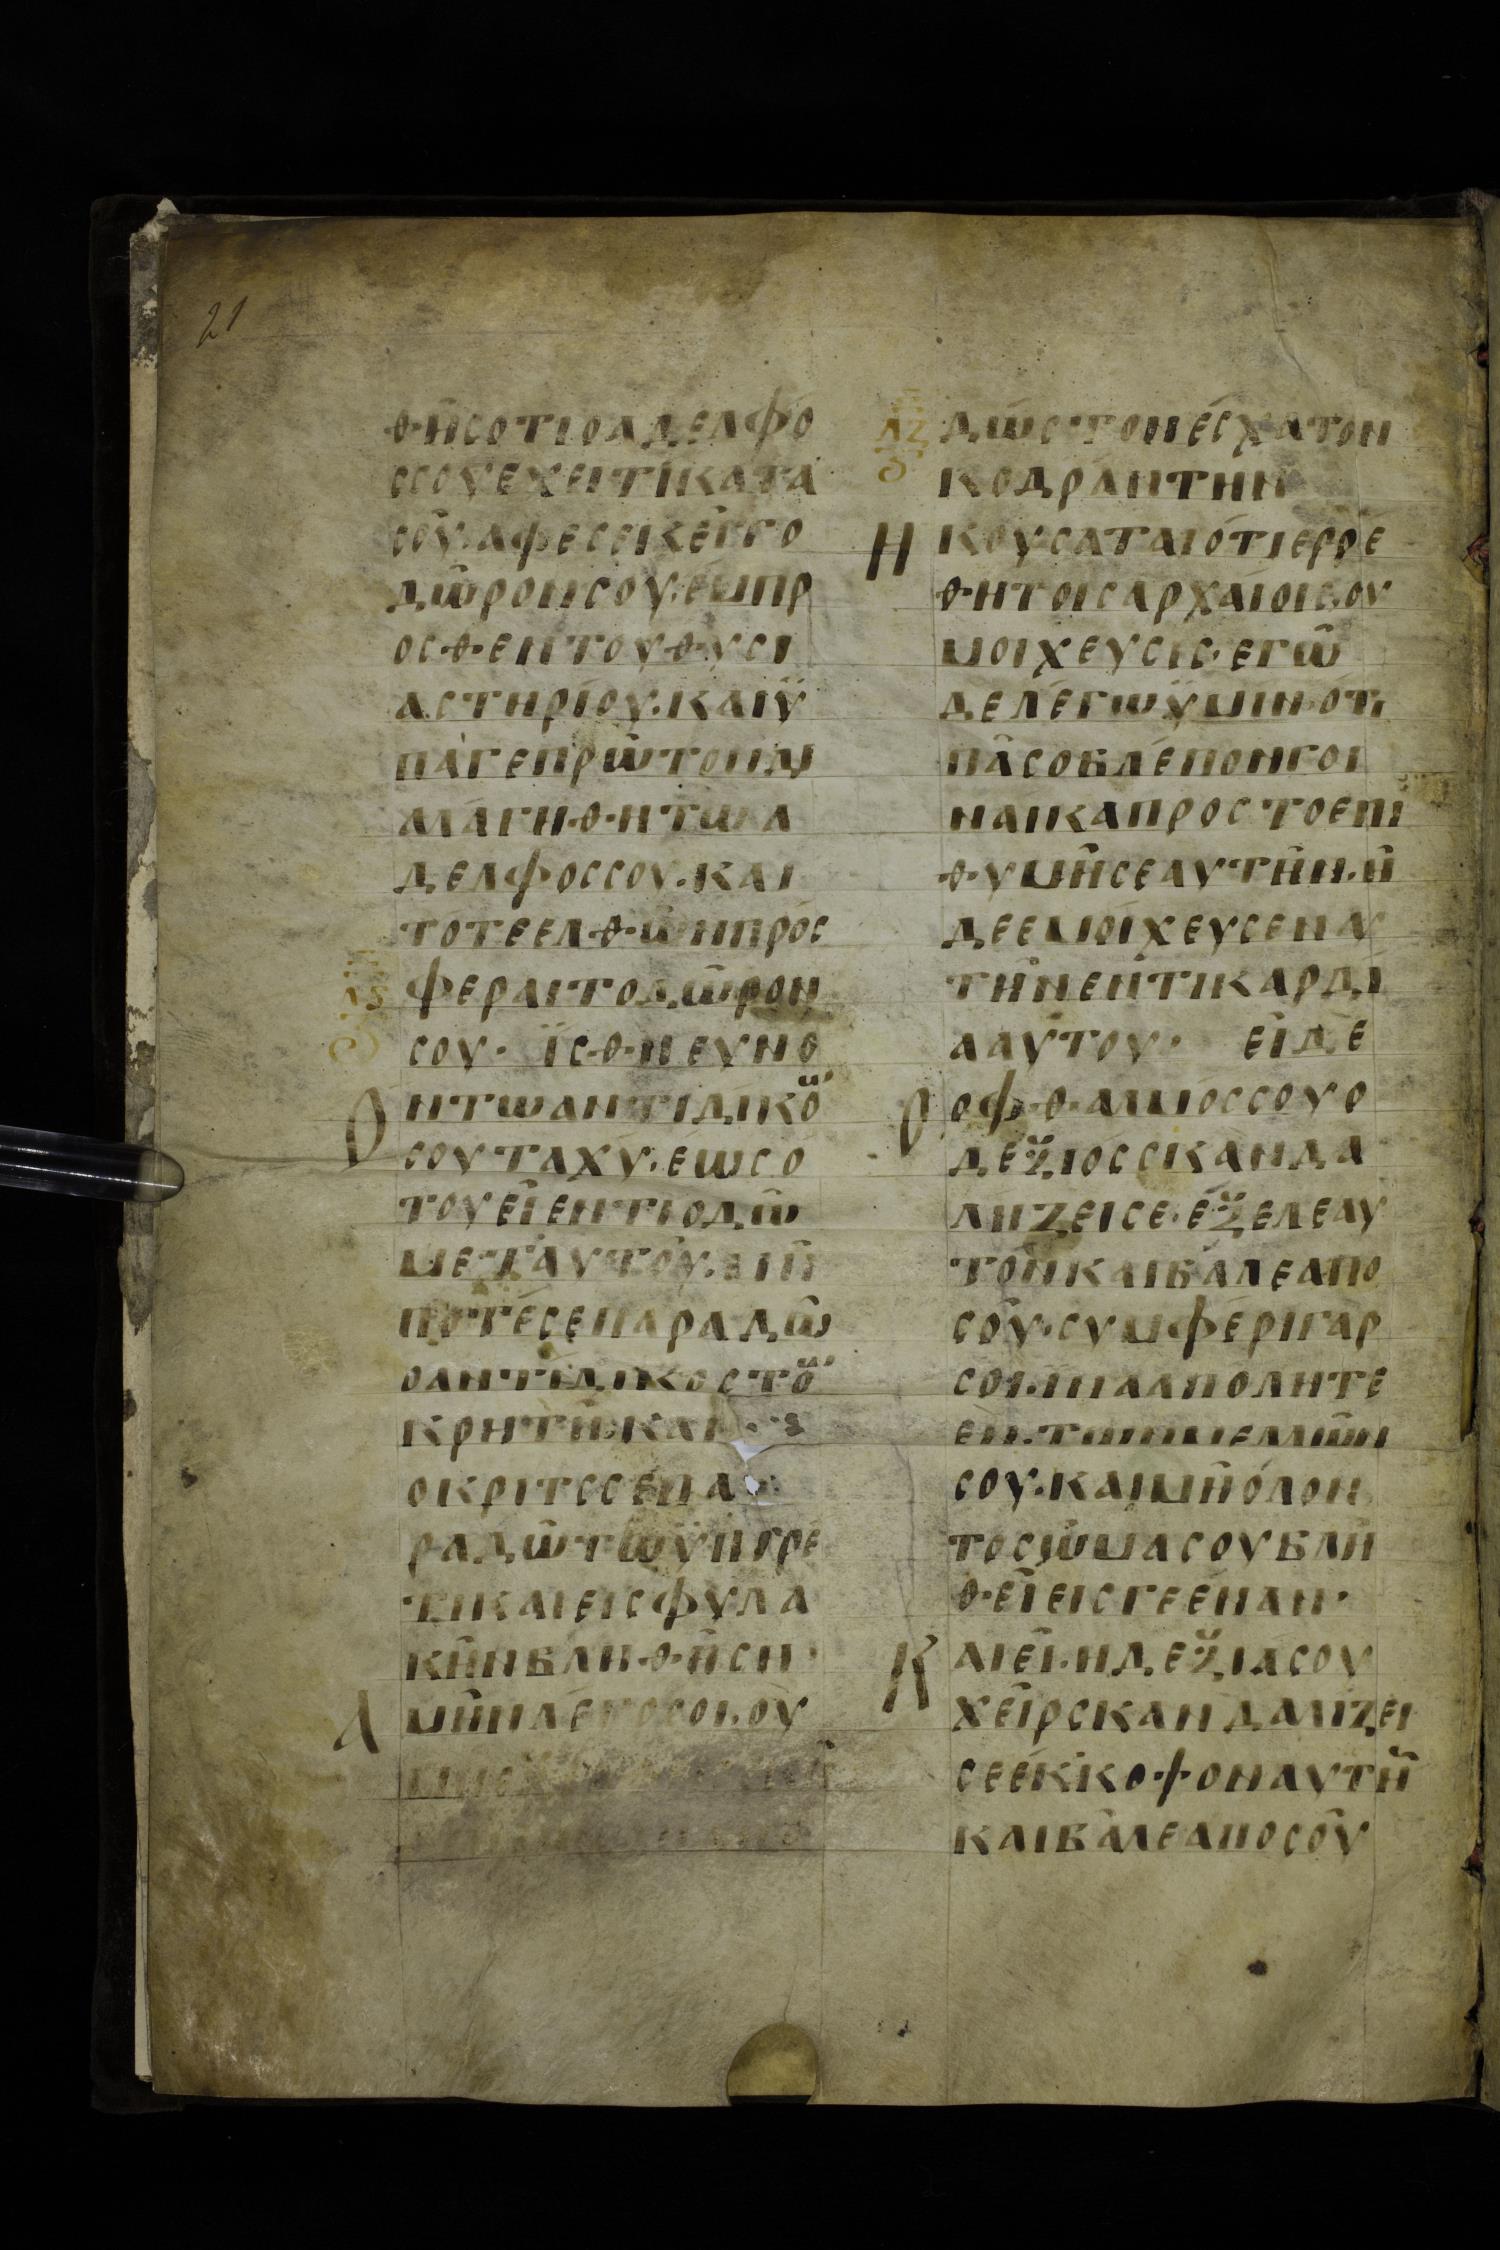 21
θησοτιοαδελφο
ссоуехеιτικατα
σου·αφεςεικειτο
δωρονσου·εμπρ
οσθεντουθυσι
αστηριου·καιϋ
παγεπρωτονδι
αλλαγηθητωα
δελφοσσου·και
τοτεελθωνπρος
φεραιτοδωρον
σου· ϊσθηευνο
Ο ητωαντιδικο
σουταχυ·εωσο
τουειεντιοδω
μεταυτου·μη
ποτεσεπαραδω
οαντιδικοστο
κρητη·και
οκριτσσεπα
ραδωτωϋπηρε
τικαιεισφυλα
κηνβληθηση·
Α μηνλεγοσοι·ου
λζ δωστονεσχατον
κοδραντην
Η κουσαταιοτιερρε
θητοισαρχαιοισ·ου
μοιχευσις·εγω
δελεγωϋμιν·οτι
πασοβλεπονγοι
ναικαπροςτοεπι
θυμησεαυτην·η
δεεμοιχευσεναυ
τηνεντικαρδι
ααυτου· ειδε
Ο οφθαλμιοσσουο
δεξιοσσκανδα
ληζεισε·εξελεαυ
τονκαιβαλεαπο
σου·συμφεριγαρ
σοι·ινααπολητε
εν·τωνμελλων
σου·καιμηολον
τοσωμασουβλη
θειεισγεεναν·
Κ αιει·ηδεξιασου
χειρσκανδαλιζει
σεεκκοφοναυτη
καιβαλεαποσου